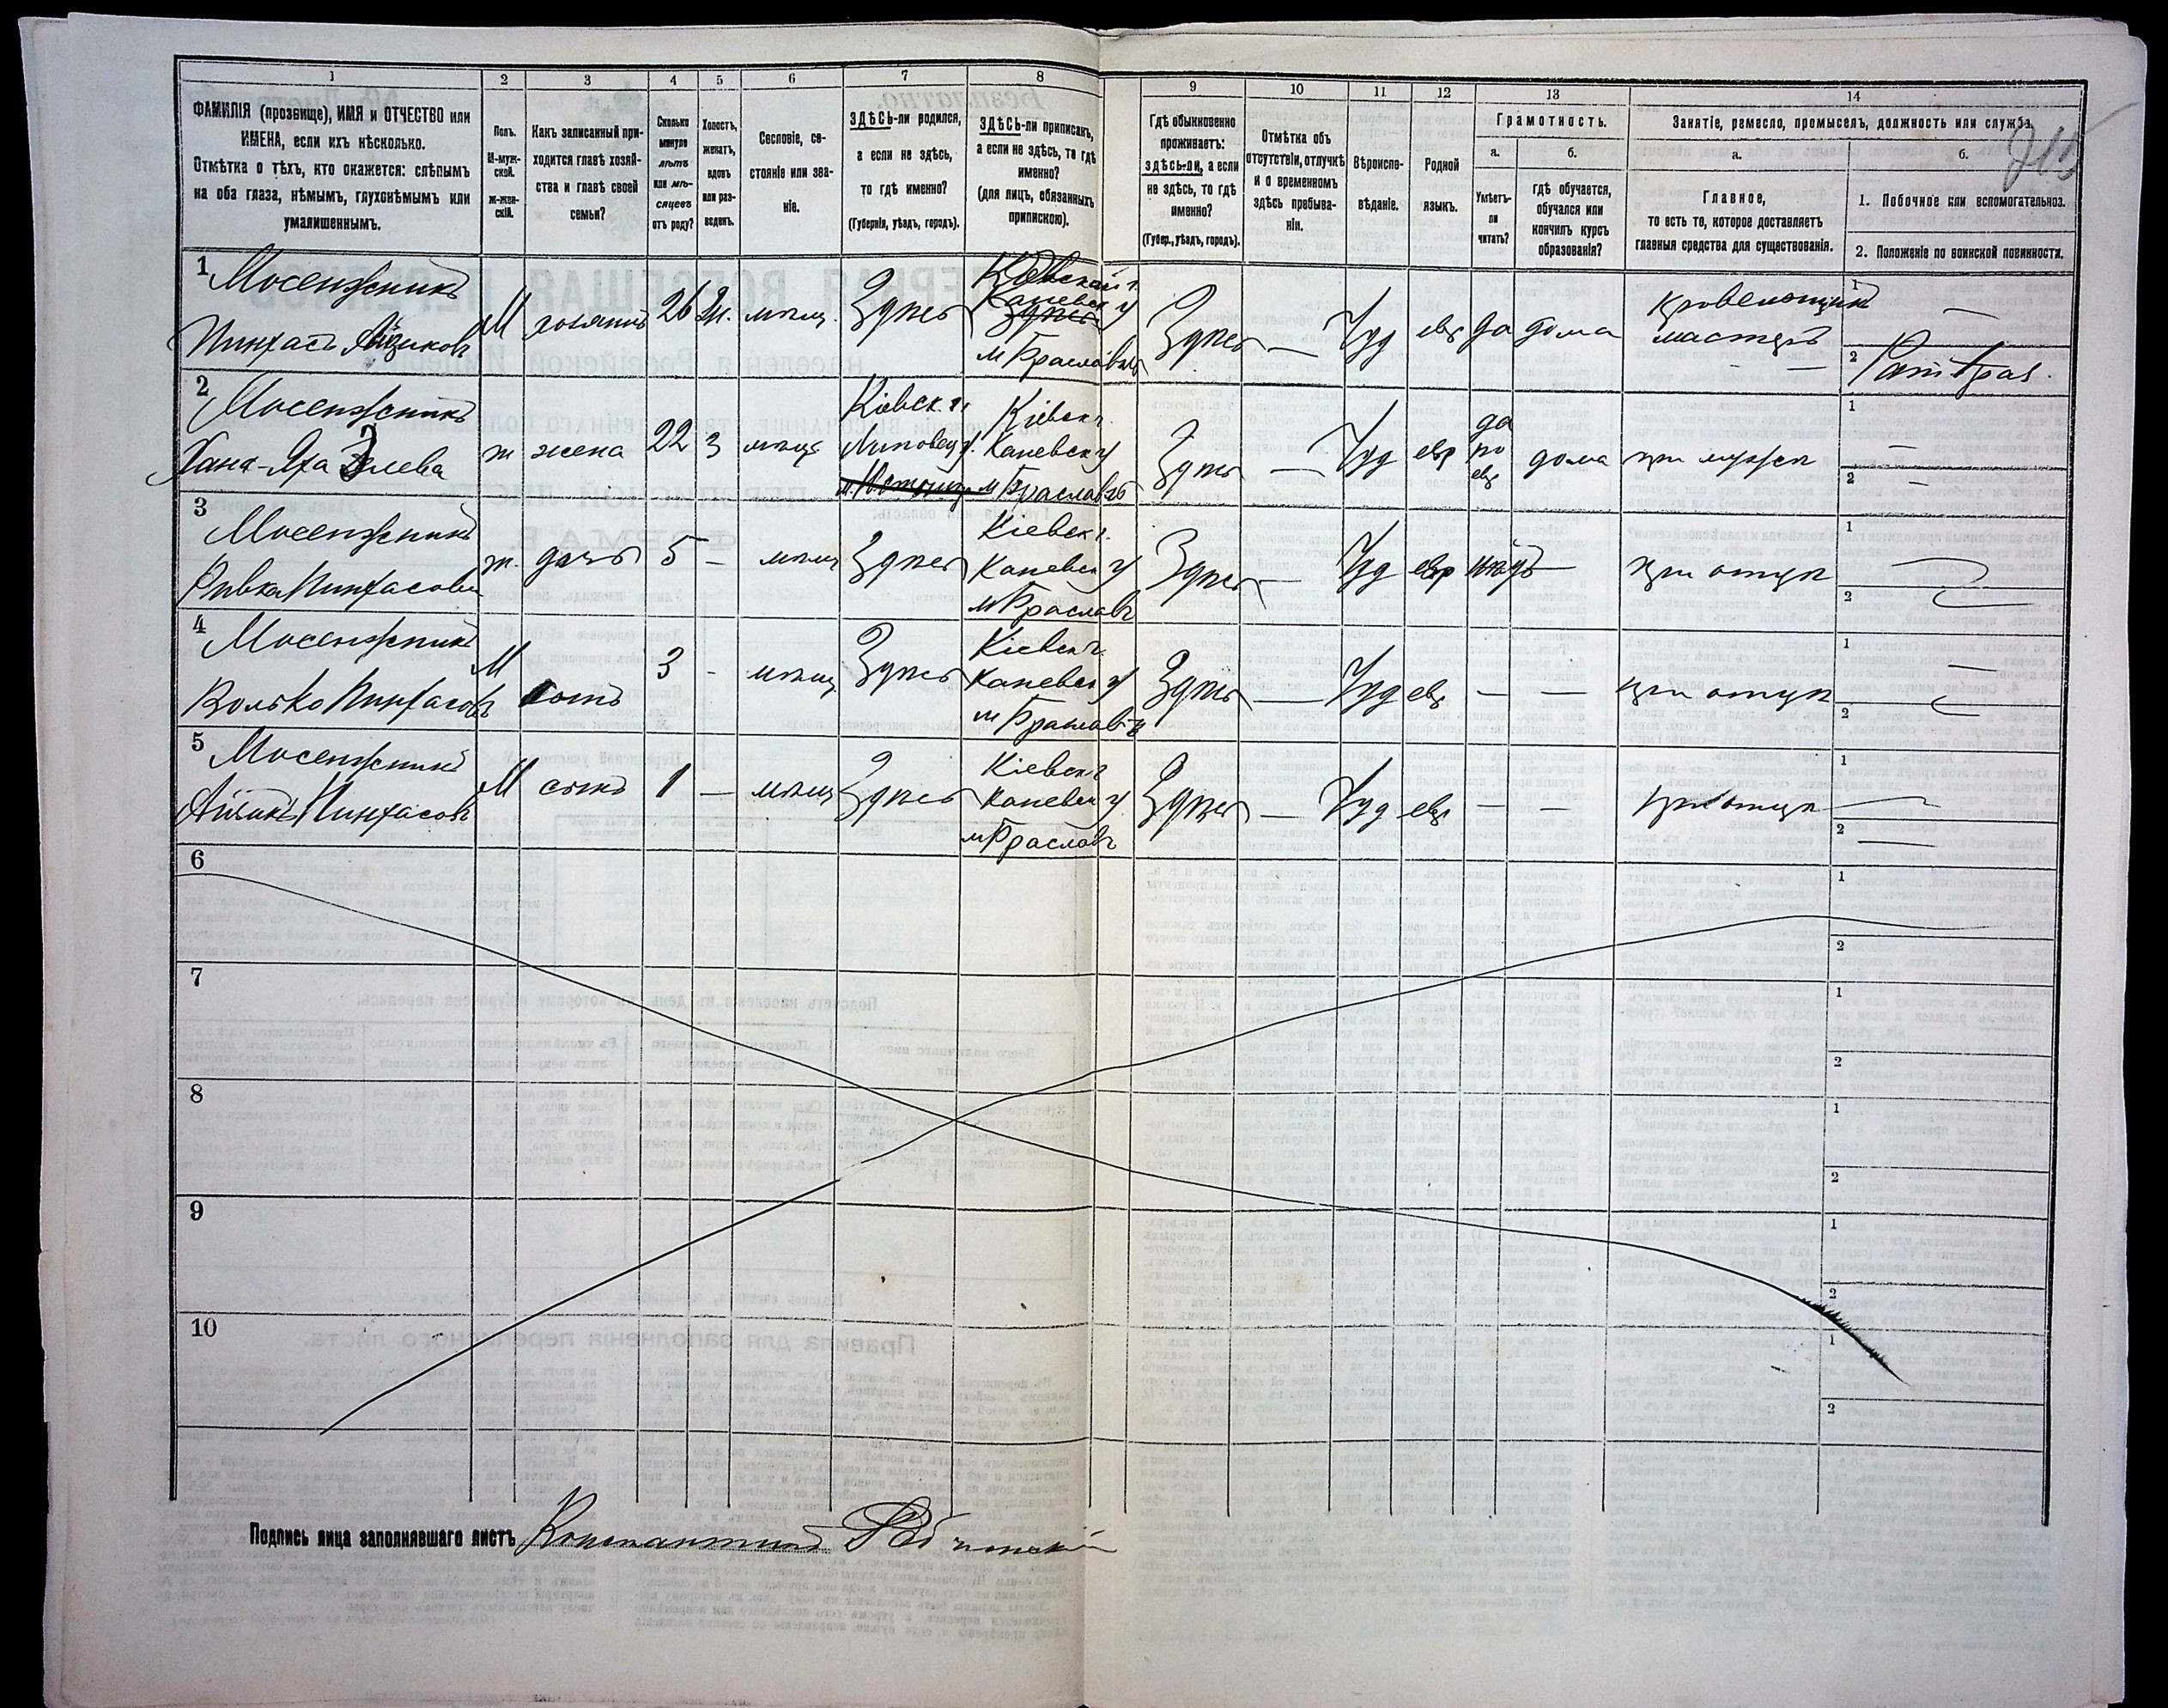 1 2 3 4 5 6 7 8 9 10 11 12 13 14
ФАМИЛІЯ (прозвище), ИМЯ и ОТЧЕСТВО или
ИМЕНА, если ихъ нѣсколько.
Отмѣтка о тѣхъ, кто окажется: слѣпымъ
на оба глаза, нѣмымъ, глухонѣмымъ или
умалишеннымъ.
Полъ.
М-муж-
ской.
Ж-жен-
скій.
Какъ записанный при-
ходится главѣ хозяй-
ства и главѣ своей
семьи?
Сколько
минуло
лѣтъ
или мѣ-
сяцевъ
отъ роду?
Холостъ,
женатъ,
вдовъ
или раз-
веденъ.
Сословіе, со-
стояніе или зва-
ніе.
ЗДѢСЬ-ли родился,
а если не здѣсь,
то гдѣ именно?
(Губернія, уѣздъ, городъ).
ЗДѢСЬ-ли приписанъ,
а если не здѣсь, то гдѣ
именно?
(для лицъ, обязанныхъ
припискою).
Гдѣ обыкновенно
проживаетъ:
ЗДѢСЬ-ли, а если
не здѣсь, то гдѣ
именно?
(Губер., уѣздъ, городъ).
Отмѣтка объ
отсутствіи, отлучкѣ
и о временномъ
здѣсь пребыва-
ніи.
Вѣроиспо-
вѣданіе.
Родной
языкъ.
Грамотность.
а.
Умѣетъ-
ли
читать?
б.
гдѣ обучается,
обучался или
кончилъ курсъ
образованія?
Занятіе, ремесло, промыселъ, должность или служба.
а.
Главное,
то есть то, которое доставляетъ
главныя средства для существованія.
б.
1. Побочное или вспомогательное.
2. Положеніе по воинской повинности.
1 Мосенжникъ
Пинхасъ Айзиковъ
М хозяинъ 26 мѣщ. Здѣсь
Кіевской г.
Каневск у
Здѣсь
м Браславъ
Здѣсь — Іуд евр да дома
Кровельщикъ
мастеръ
1 —
2
2 Мосенжникъ
Хана-
ж жена 22 З мѣщ
Кіевск. г.
Липовец у.
Кіевск г.
Каневск у
м Браславъ
Здѣсь — Іуд евр
да
по
евр
дома при мужѣ
1 —
2 —
3 Мосенжникъ
Ривка Пинхасова
ж. дочь 5 — мѣщ Здѣсь
Кіевск г.
Каневск у
м Браславъ
Здѣсь — Іуд евр нѣтъ — при отцѣ
1 —
2 —
4 Мосенжникъ
Волько Пинхасовъ
М сынъ 3 - мѣщ Здѣсь
Кіевск г.
Каневск у
м Браславъ
Здѣсь — Іуд евр — — при отцѣ
1 —
2 —
5 Мосенжникъ
Айзикъ Пинхасовъ
М сынъ 1 — мѣщ Здѣсь
Кіевск г
Каневск у
м Браславъ
Здѣсь — Іуд евр — — при отцѣ
1 —
2 —
6
1
2
7
1
2
8
1
2
9
1
2
10
1
2
Подпись лица заполнявшаго листъ Константинъ